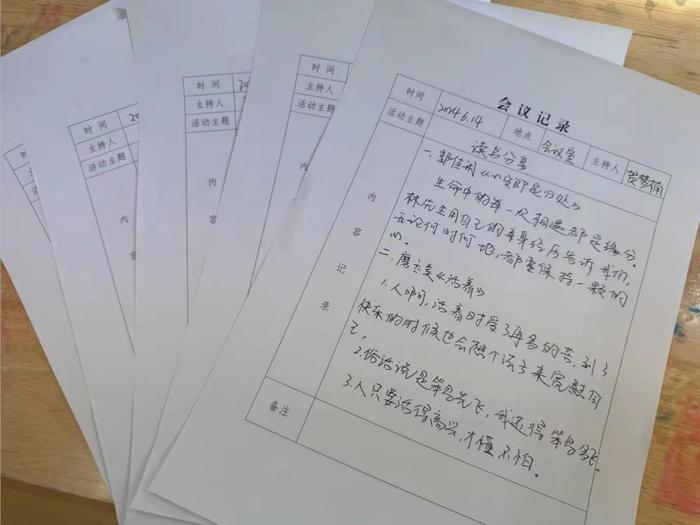 会议记录
时间 2024.6.14 地点 会议室 主持人 贺梦楠
活动主题 读书分享
内容记录
一、郭佳《心安即是归处》
生命中的每一次相遇都是缘分。
林先生用自己的亲身经历告诉我们,
无论何时何地,都要保持一颗
心。
二、《活着》
1.人啊,活着时受了再多的苦,到了
快乐的时候也会想个法子来宽慰自
己。
2.俗话说是笨鸟先飞,我还得笨鸟多飞。
3.人只要活得高兴,才懂不怕。
备注
时间
主持人
活动主题
内
时间
主持人
活动主题
内容
时间 20
主持人
活动主题
内容